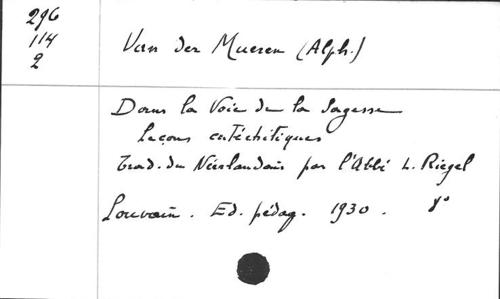 296
114
2
Van der Mueren (Alph.)
Dans la Voie de la Sagesse
Leçons catéchétiques
Trad. du Néerlandais par l'Abbé L. Riegel
Louvain. Ed. pédag. 1930. 8°